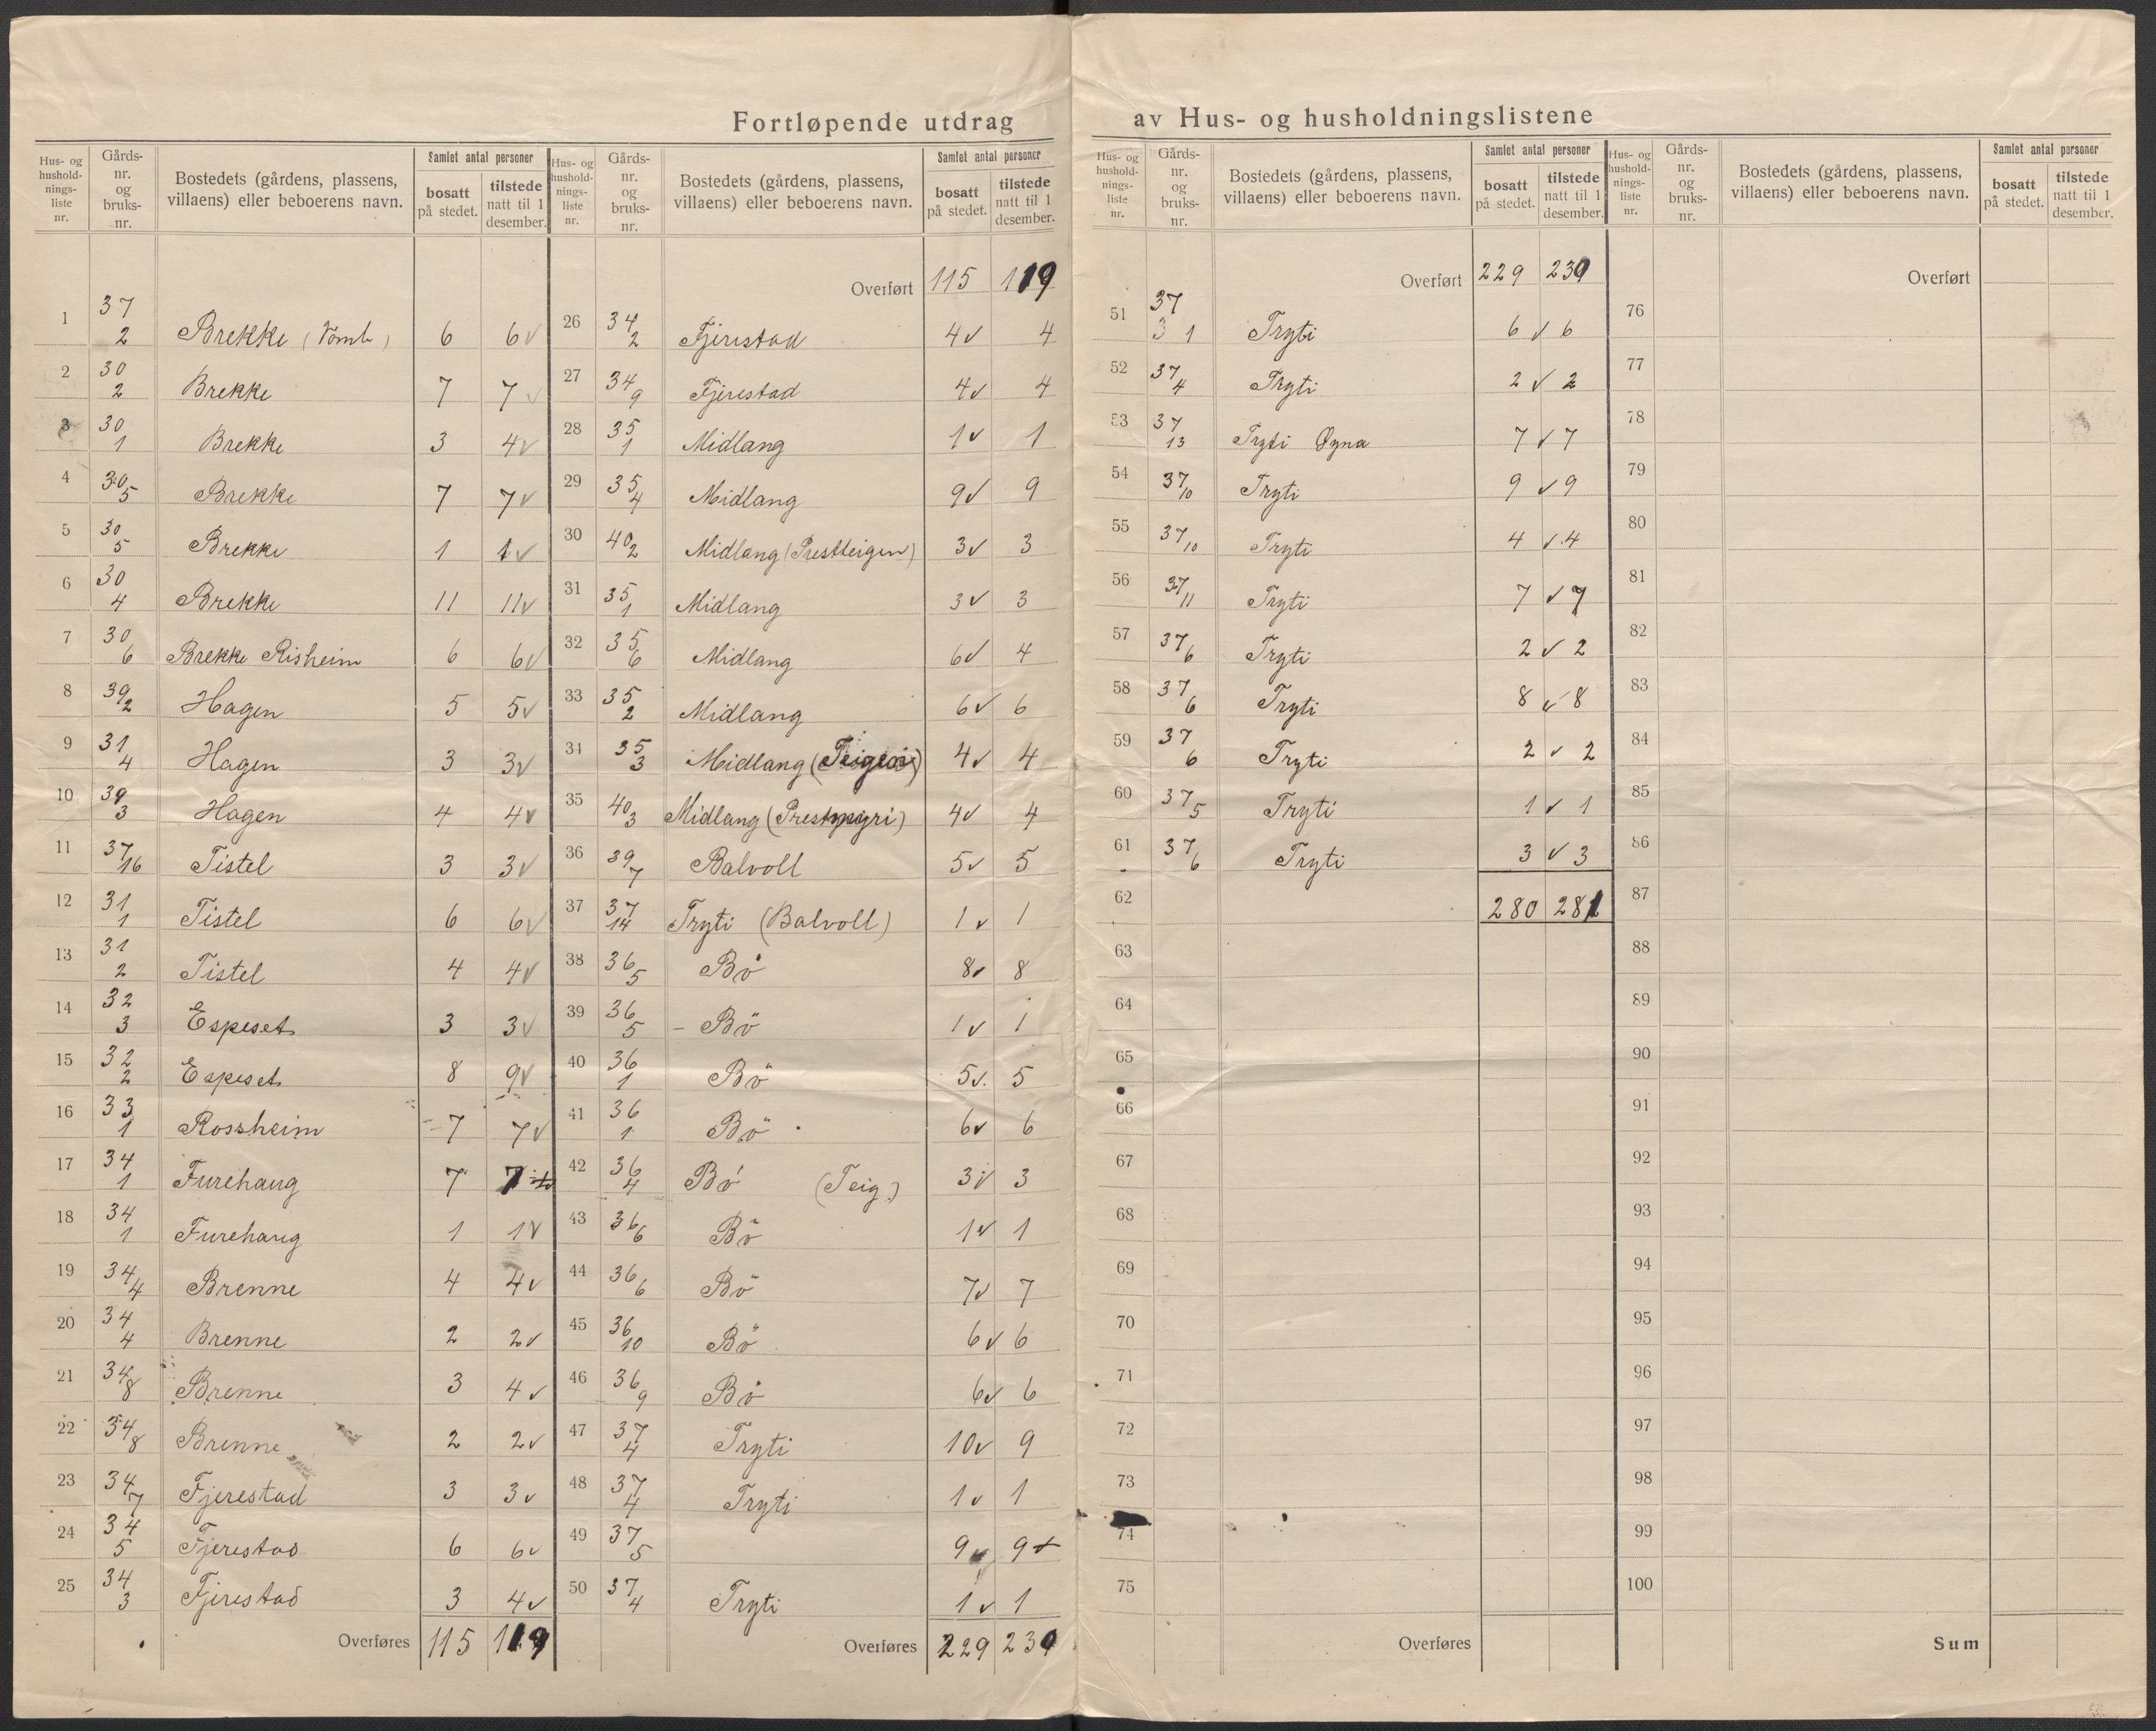 Fortløpende utdrag av Hus- og husholdningslistene
Hus- og husholdnings-liste nr. | Gårds-nr. og bruks-nr. | Bostedets (gårdens, plassens, villaens) eller beboerens navn. | Samlet antal personer | bosatt på stedet. | tilstede natt til 1 desember.
1 37/2 Brekke 6 6 v
2 30/2 Brekke 7 7 v
3 30/1 Brekke 3 4 v
4 30/5 Brekke 7 7 v
5 30/5 Brekke 1 1 v
6 30/4 Brekke 11 11 v
7 30/6 Brekke Risheim 6 6 v
8 39/2 Hagen 5 5 v
9 31/4 Hagen 3 3 v
10 39/3 Hagen 4 4 v
11 37/16 Tistel 3 3 v
12 31/1 Tistel 6 6 v
13 31/2 Tistel 4 4 v
14 32/3 Espeset 3 3 v
15 32/2 Espeset 8 9 v
16 33/1 Rossheim 7 7 v
17 34/1 Furehaug 7 7
18 34/1 Furehaug 1 1 v
19 34/4 Brenne 4 4 v
20 34/4 Brenne 2 2 v
21 34/8 Brenne 3 4 v
22 34/8 Brenne 2 2 v
23 34/7 Fjerestad 3 3 v
24 34/5 Fjerestad 6 6 v
25 34/3 Fjerestad 3 4 v
Overføres 115 119
Hus- og husholdnings-liste nr. | Gårds-nr. og bruks-nr. | Bostedets (gårdens, plassens, villaens) eller beboerens navn. | Samlet antal personer | bosatt på stedet. | tilstede natt til 1 desember.
Overført 115 119
26 34/2 Fjerestad 4 v 4
27 34/9 Fjerestad 4 v 4
28 35/1 Midlang 1 v 1
29 35/4 Midlang 9 v 9
30 40/2 Midlang (Prestteigen) 3 v 3
31 35/1 Midlang 3 v 3
32 35/6 Midlang 6 v 4
33 35/2 Midlang 6 v 6
34 35/3 Midlang (Teigen) 4 v 4
35 40/3 Midlang 4 v 4
36 39/7 Balvoll 5 v 5
37 37/14 Tryti (Balvoll) 1 v 1
38 36/5 Bö 8 v 8
39 36/5 - Bö 1 v 1
40 36/1 Bö 5 v. 5
41 36/1 Bö 6 v 6
42 36/4 Bö (Teig.) 3 v 3
43 36/6 Bö 1 v 1
44 36/6 Bö 7 v 7
45 36/10 Bö 6 v 6
46 36/9 Bö 6 v 6
47 37/4 Tryti 10 v 9
48 37/4 Tryti 1 v 1
49 37/5 9 v 9
50 37/4 Tryti 1 v 1
Overføres 229 230
Hus- og husholdnings-liste nr. | Gårds-nr. og bruks-nr. | Bostedets (gårdens, plassens, villaens) eller beboerens navn. | Samlet antal personer | bosatt på stedet. | tilstede natt til 1 desember.
Overført 229 230
51 37 3 1 Tryti 6 v 6
52 37/4 Tryti 2 v 2
53 37/13 Tryti Øyna 7 v 7
54 37/10 Tryti 9 v 9
55 37/10 Tryti 4 v 4
56 37/11 Tryti 7 v 7
57 37/6 Tryti 2 v 2
58 37/6 Tryti 8 v 8
59 37/6 Tryti 2 v 2
60 37/5 Tryti 1 v 1
61 37/6 Tryti 3 v 3
62 280 281
63
64
65
66
67
68
69
70
71
72
73
74
75
Overføres
Hus- og husholdnings-liste nr. | Gårds-nr. og bruks-nr. | Bostedets (gårdens, plassens, villaens) eller beboerens navn. | Samlet antal personer | bosatt på stedet. | tilstede natt til 1 desember.
Overført
76
77
78
79
80
81
82
83
84
85
86
87
88
89
90
91
92
93
94
95
96
97
98
99
100
Sum